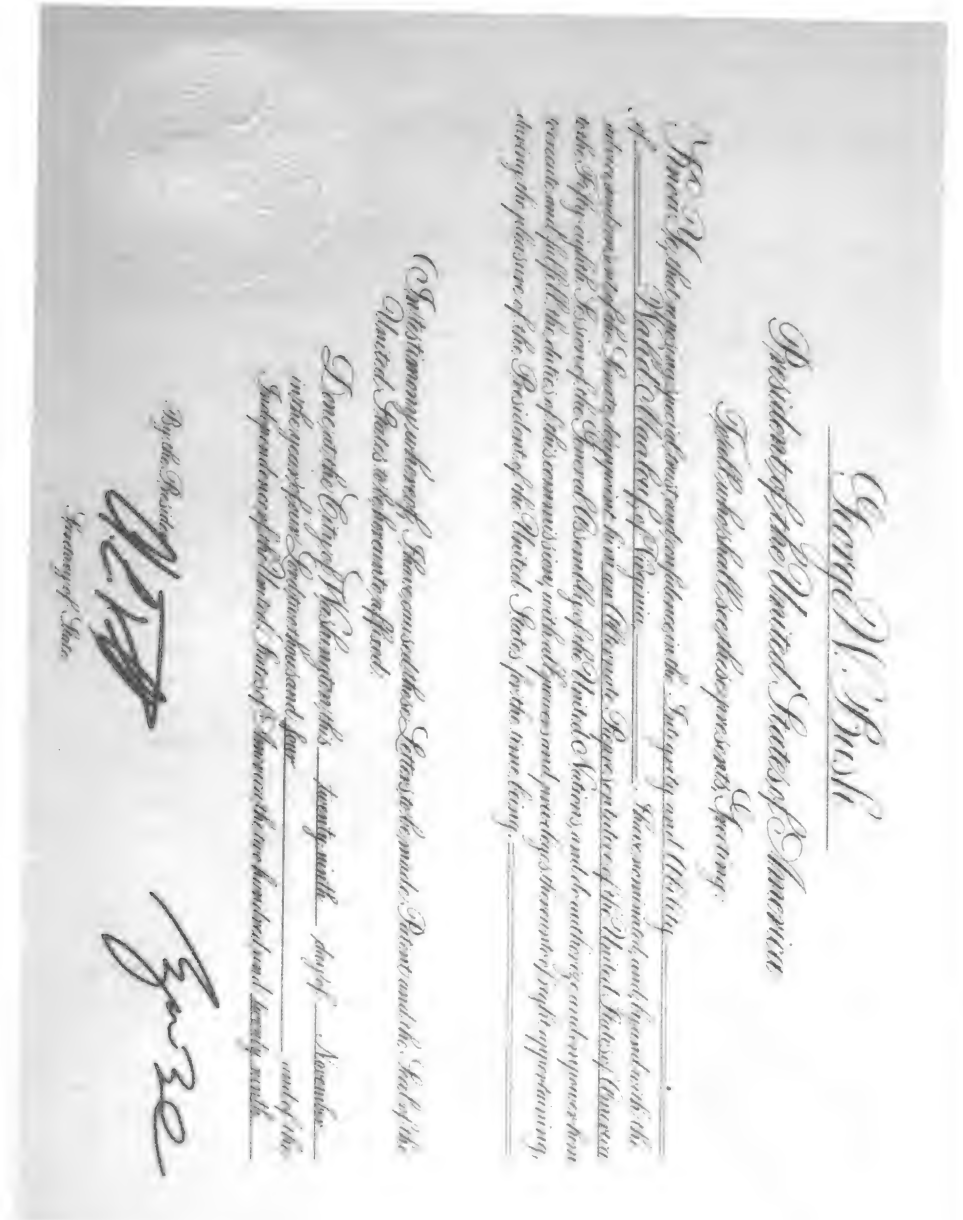 George W. Bush
President of the United States of America
To all who shall see these presents, Greeting:
Know Ye, that reposing special trust and confidence in the Integrity and Ability
of Walid Maalouf of Virginia I have nominated, and, by and with the
advice and consent of the Senate, do appoint him an Alternate Representative of the United States of America
to the Fifty-eighth Session of the General Assembly of the United Nations, and do authorize and empower him
to execute and fulfill the duties of this commission, with all powers and privileges thereunto of right appertaining,
during the pleasure of the President of the United States for the time being.
In testimony whereof, I have caused these Letters to be made Patent and the Seal of the
United States to be hereunto affixed.
Done at the City of Washington this twenty-ninth day of November
in the year of our Lord two thousand four and of the
Independence of the United States of America the two hundred and twenty-ninth
By the President
Secretary of State